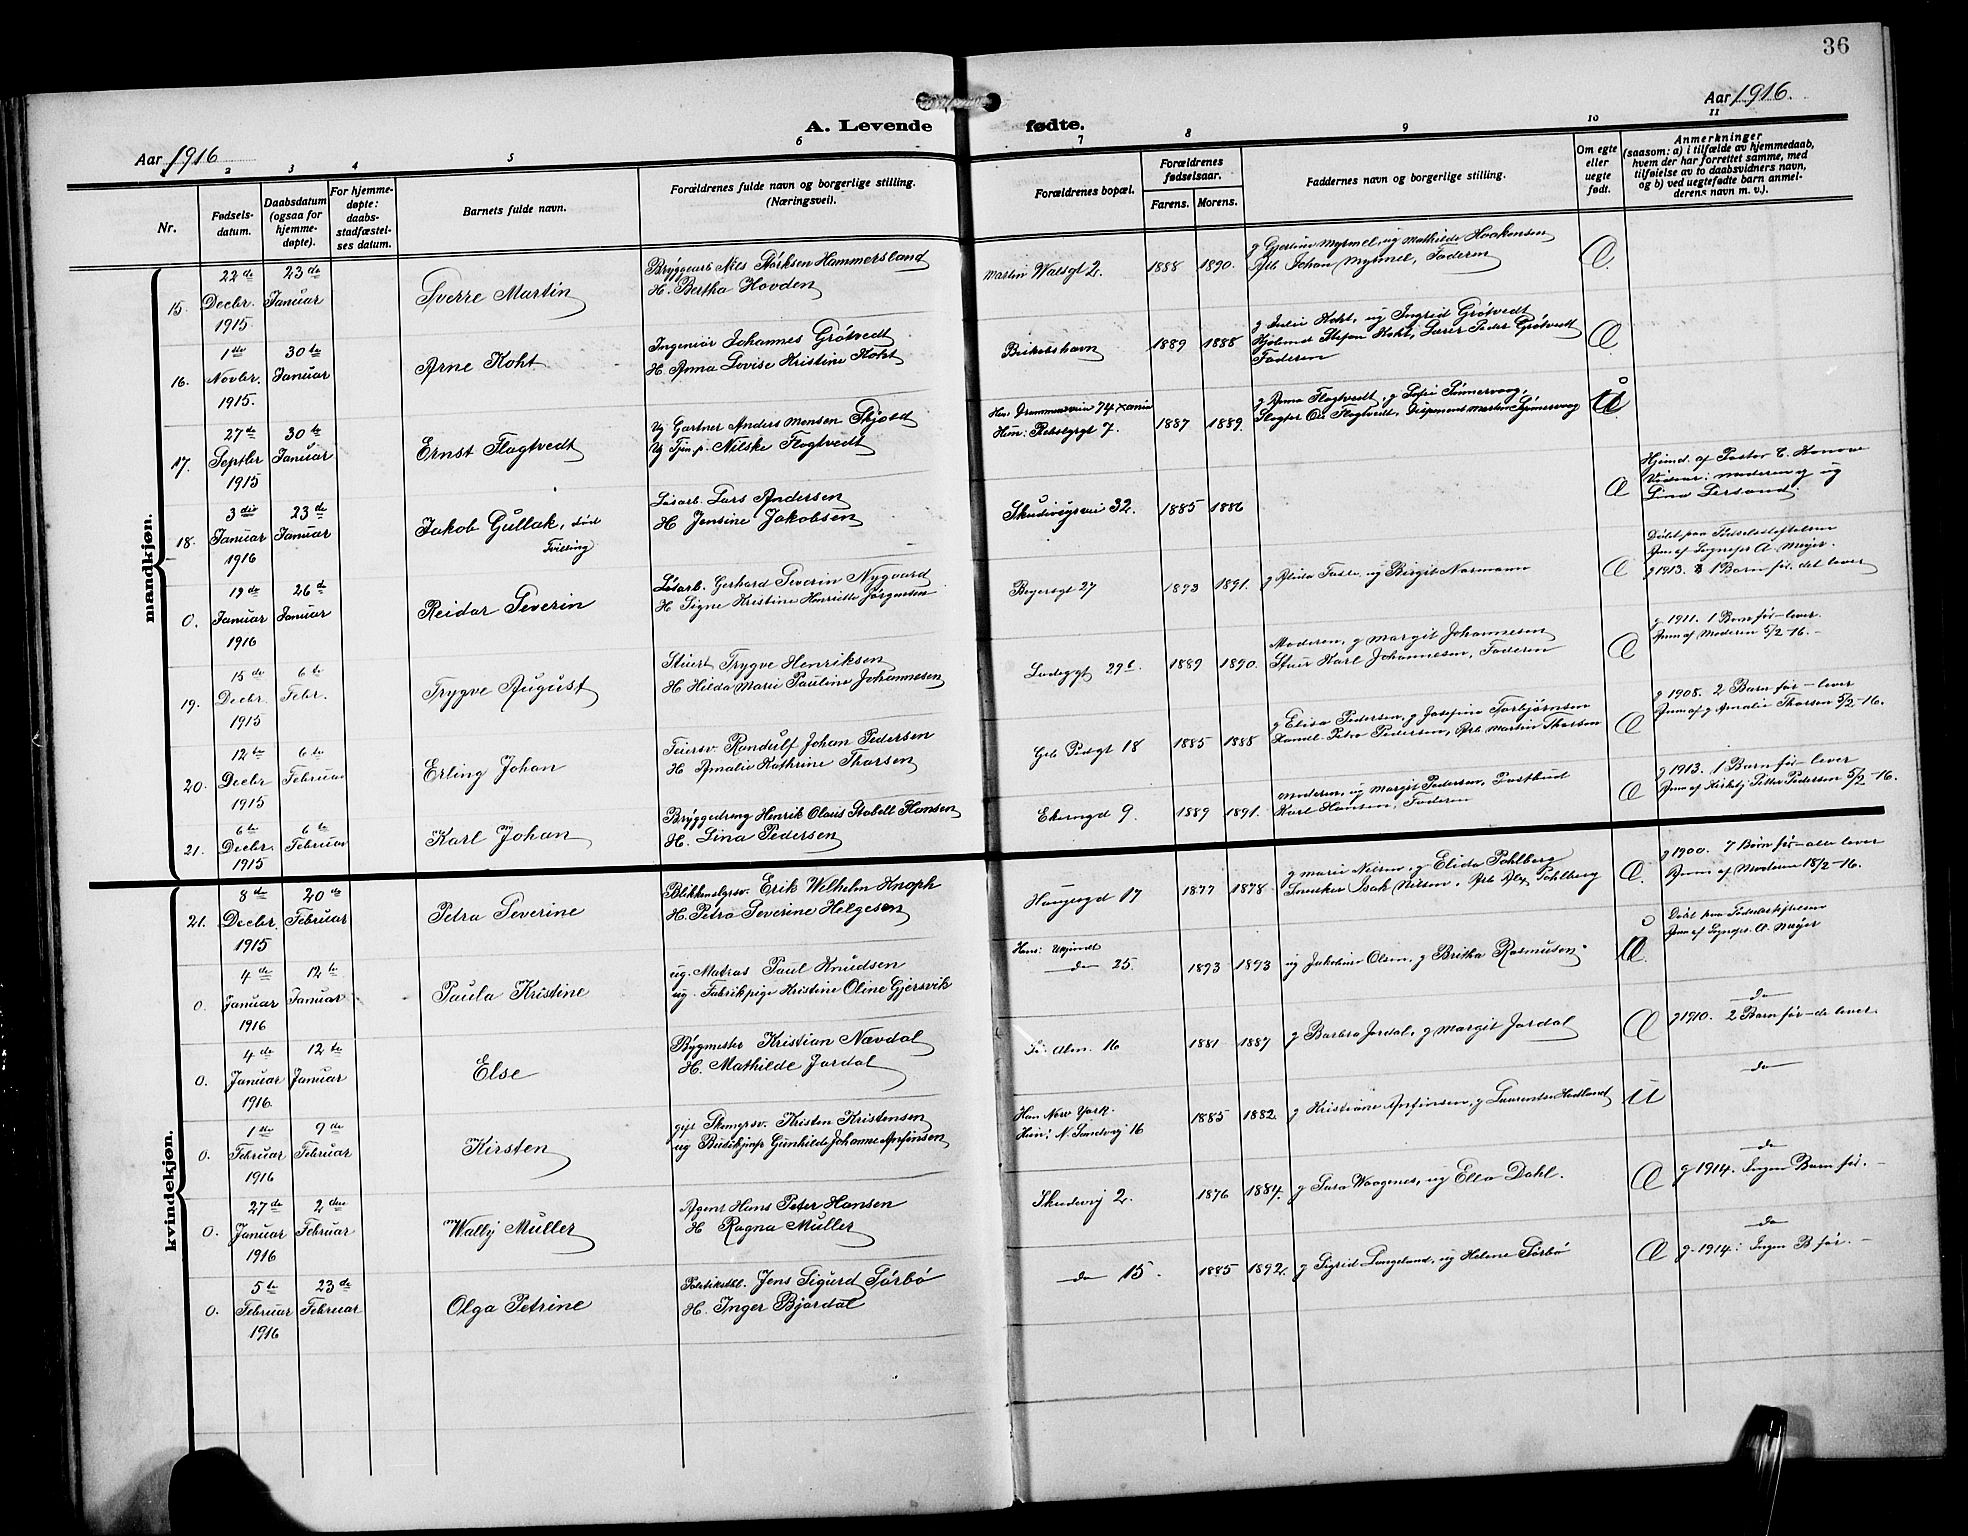 36
Aar 1916.
A. Levende fødte.
Aar 1916
2 3 4 5 6 7 8 9 10 11
Nr.
Fødsels-
datum.
Daabsdatum
(ogsaa for
hjemme-
døpte).
For hjemme-
døpte:
daabs-
stadfæstel-
ses datum.
Barnets fulde navn.
Forældrenes fulde navn og borgerlige stilling.
(Næringsvei).
Forældrenes bopæl.
Forældrenes
fødselsaar.
Farens. Morens.
Faddernes navn og borgerlige stilling.
Om egte
eller
uegte
født.
Anmerkninger
(saasom: a) i tilfælde av hjemmedaab,
hvem der har forrettet samme, med
tilføielse av to daabsvidners navn,
og b) ved uegtefødte barn anmel-
derens navn m. v.).
mandkjøn.
15.
22 de
Decbr.
1915
23 de
Januar
Sverre Martin
Bryggearb Nils Størksen Hammersland
H. Bertha Hovden
Martin Walsgt 2.
1888 1890.
g Gjertine Myrmel, ug Mathilde Haakensen
Arb Johan Myrmel, Faderen
16.
1 ste
Novbr.
1915.
30 te
Januar
Arne Koht
Ingeniør Johannes Grötvedt
H. Anna Lovise Kristine Koht
Birkelshavn
1889 1888
g Julie Koht, ug Ingrid Grötvedt
Stefan Koht, Lærer Peder Grötvedt
Faderen
17.
27 de
Septbr
1915
30 te
Januar
Ernst Flagtvedt
Ug Gartner Anders Monsen Skjold
Ug Tjen.p. Nilske Flogtvedt
Han: Drammensvein 74 Xania
Hun: Rebslgrgt 7.
1887 1889.
g Anna Flagtvedt, g Sofie
Ole Flagtvedt, Disponent Martin
18.
3 die
Januar
1916
23 de
Januar
Jakob Gullak, død
Tvilling
Løsarb. Lars Andersen
H Jensine Jakobsen
Skudeviksvei 32.
1885 1886
Hjemd. af Pastor C. Konow
Vidner: moderen og ug
Lina
0.
19 de
Januar
1916
26 d
Januar
Reidar Severin
Løsarb. Gerhard Severin Nygaard
H Signe Kristine Henriette Jørgensen
Beyersgt 27
1893 1891.
g Alida Faste, ug Birgit Normann
Døbt paa Fødselsstiftelsen
Anm af Sognepr A. Meyer.
g 1913. 1 Barn før. det lever
19.
15 de
Decbr.
1915
6 te
Febr.
Trygve August
Stuert Trygve Henriksen
H Hilda Marie Pauline Johannesen
Ladegt 29 c.
1889 1890.
Moderen, g Margit Johannesen
Stuer Karl Johannesen, Faderen
g 1911. 1 Barn før - lever.
Anm af Moderen 5/2-16.-
20.
12 te
Decbr
1915
6 te
Februar
Erling Johan
Feiersv. Randulf Johan Pedersen
H Amalie Kathrine Thorsen
18
1885 1888
g Elisa Pedersen, g Josefine Torbjørnsen
Handl. Peter Pedersen, Arb. Martin Thorsen
g 1908. 2 Barn før - lever
Anm af g Amalie Thorsen 5/2-16.
21.
6 te
Decbr.
1915
6 te
Februar
Karl Johan
Bryggedreng Henrik Olaus Stabell Hansen
H. Lina Pedersen
Ekerngd 9.
1889 1891.
Moderen, ug Margit Pedersen, Postbud
Karl Hansen, Faderen
g 1913. 1 Barn før - lever
Anm af Kirketj Petter Pedersen 5/2-16.
kvindekjøn.
21.
8 de
Decbr.
1915
20 de
Februar
Petra Severine
Blikkenslgrsv. Erik Wilhelm Knoph
H. Petra Severine Helgesen
Haugesgd 17
1877 1878.
g Marie Nilsen, g Elida Pohlberg
Snedker Isak Nilsen, Arb Alf Pohlberg
g 1900. 7 Børn før - alle lever
Anm af Moderen 18/2-16.
0.
4 de
Januar
1916
12 te
Januar
Paula Kristine
ug. Matros Paul Knudsen
ug. Fabrikpige Kristine Oline Gjersvik
Hans: Ukjendt
do 25.
1893 1893
ug Jakobine Olsen, g Britha Rasmusen
Døbt paa Fødselsstiftelsen
Anm af Sognepr. A. Meyer
0.
4 de
Januar
1916.
12 te
Januar
Else
Bygmester Kristian Nævdal
H. Mathilde Jordal
16
1881 1887
g Barbra Jordal, g Margit Jordal
do
g 1910. 2 Barn før - de lever
0.
1 ste
Februar
1916
9 de
Februar
Kirsten
gift Kristen Kristensen
ug Butikjmfr Gunhilde Johanne Anfinsen
Han New York.
Hun: N. Sandvig 16
1885 1882.
g Kristiane Anfinsen, g Laurentse Hadland
U
do
0.
27 de
Januar
1916
2 den
Februar
Walby Müller
Agent Hans Peter Hansen
H Ragna Müller
Skudevig 2.
1876 1884.
g Sara Waagenes, ug Ella Dahl.
do
g 1914. Ingen Barn før. -
0.
5 te
Februar
1916
23 de
Februar
Olga Petrine
Jens Sigurd Sörbö
H. Inger Bjordal
do 15.
1885 1892.
g Sigrid Langeland, ug Helene Sörbö
do
g. 1914: Ingen B før. -